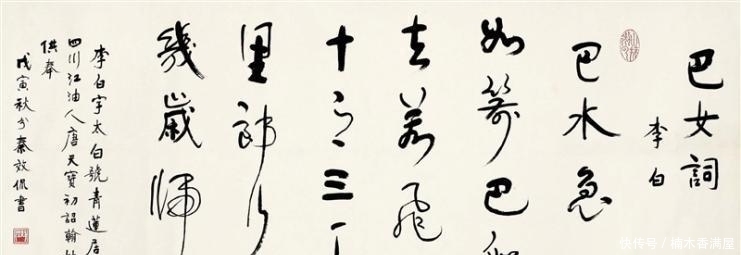 巴女詞
李白
巴水急
如箭巴船
去若飛
十月三千
里郎行
幾歲歸
李白字太白號青蓮居
四川江油人唐天寶初詔翰林
供奉
戊寅秋分秦效侃書
快传号 / 楠木香满屋